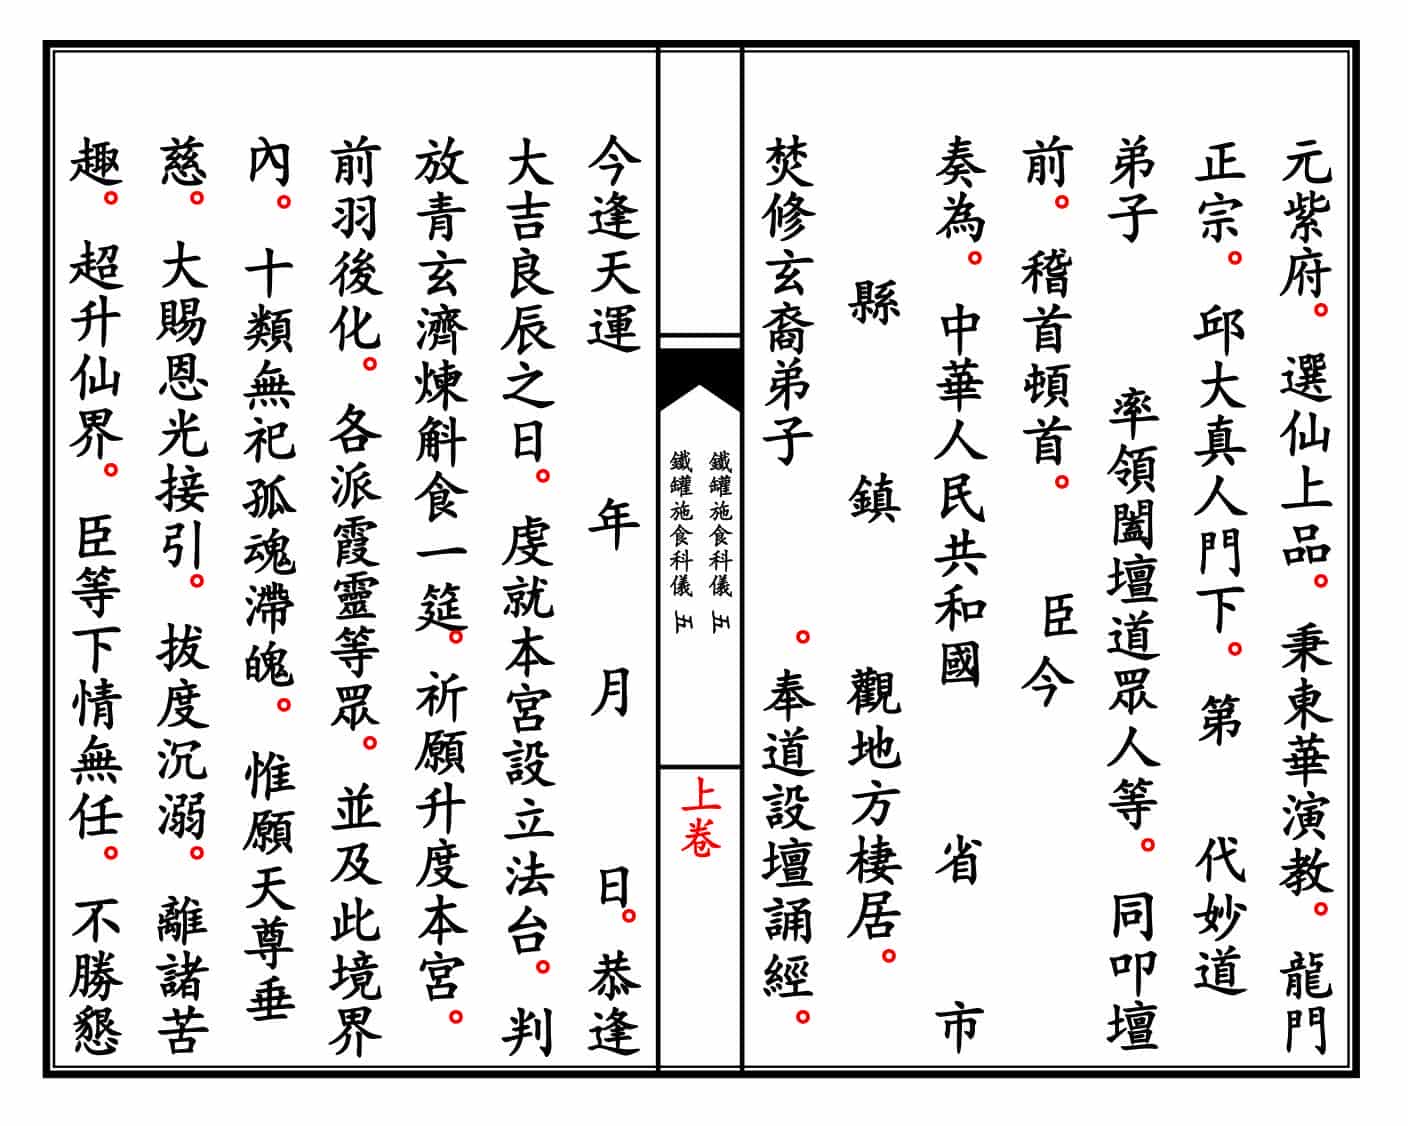 元紫府。選仙上品。秉東華演教。龍門
正宗。邱大真人門下。第　　代妙道
弟子　　　率領闔壇道眾人等。同叩壇
前。稽首頓首。　　臣今
奏為。中華人民共和國　　　省　　市
縣　　　鎮　　　觀地方棲居。
焚修玄裔弟子　　　　。奉道設壇誦經。
鐵罐施食科儀 五
上卷
鐵罐施食科儀 五
今逢天運　　　年　　月　　　日。恭逢
大吉良辰之日。虔就本宮設立法台。判
放青玄濟煉斛食一筵。祈願升度本宮。
前羽後化。各派霞靈等眾。並及此境界
內。十類無祀孤魂滯魄。惟願天尊垂
慈。大賜恩光接引。拔度沉溺。離諸苦
趣。超升仙界。臣等下情無任。不勝懇